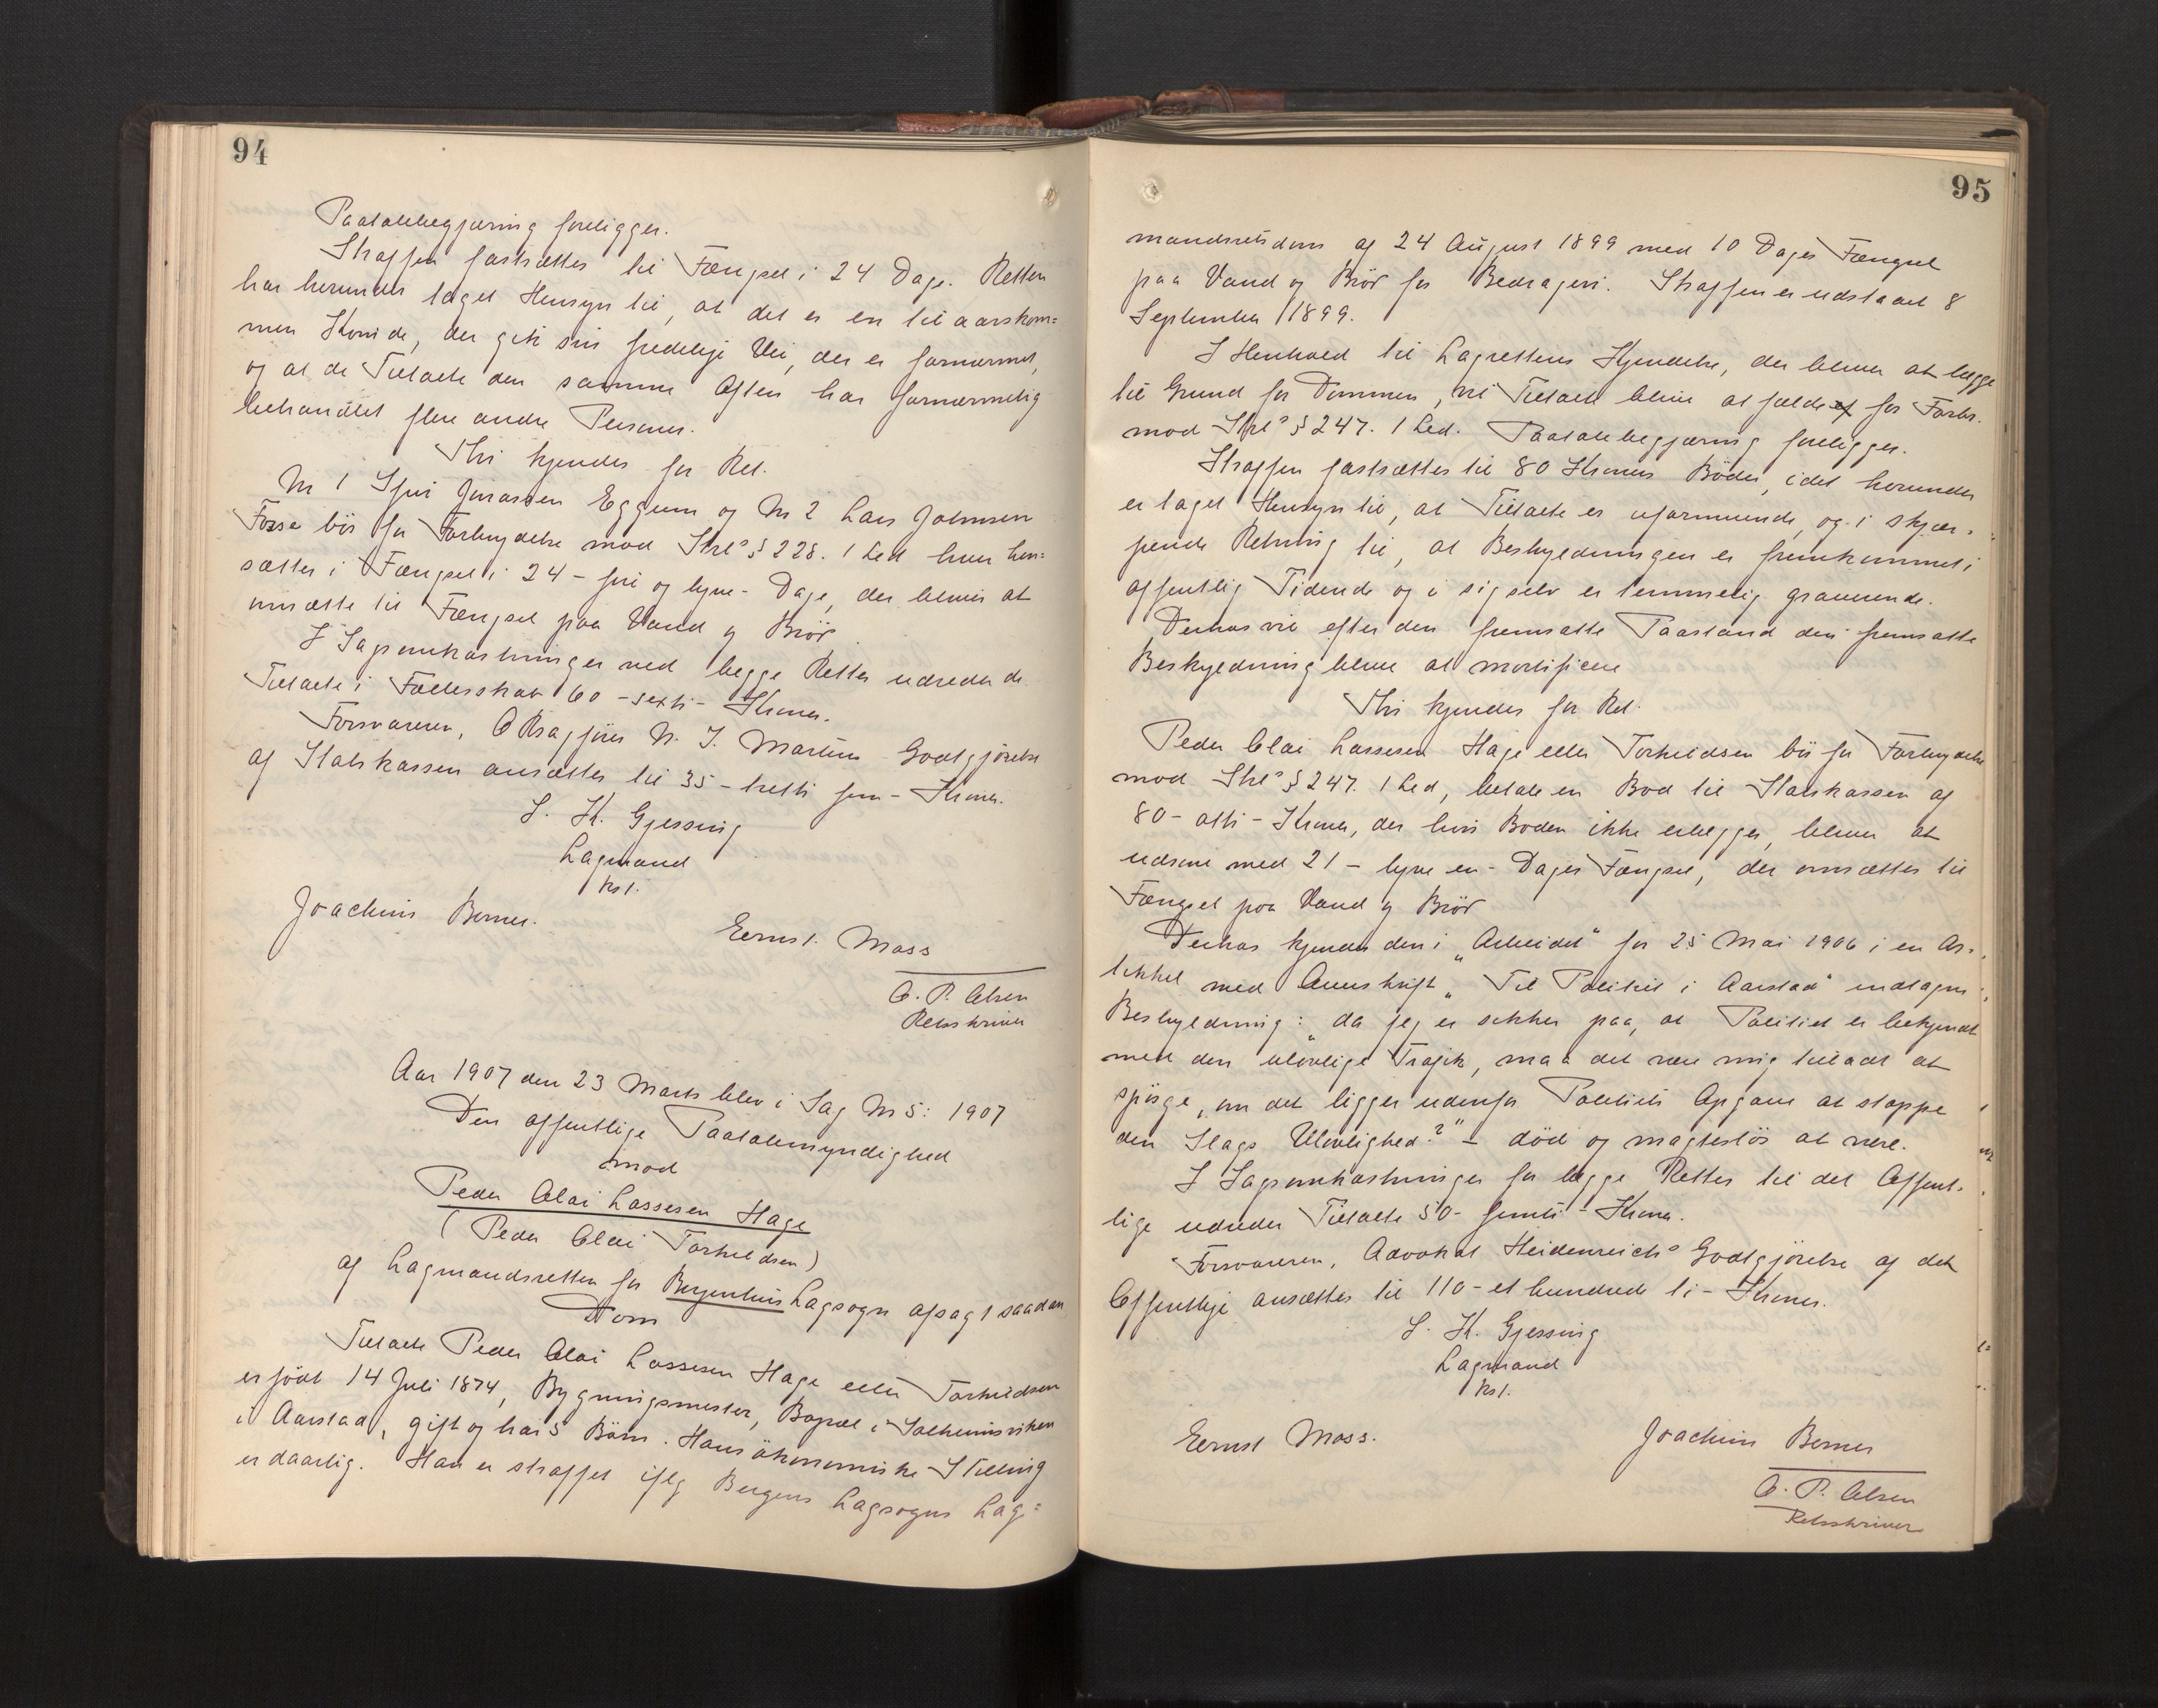 94
Paatalebegjæring foreligger.
Straffen fastsættes til Fængsel i 24 Dage. Retten
har herunder taget Hensyn til, at det er en til aarskom=
men Kvinde, der gik sin fredelige Vei, der er fornærmet,
og at de Tiltalte den samme Aften har fornærmelig
behandlet flere andre Personer.
Thi kjendes for Ret.
No 1 Jonassen Eggum og No 2 Lars Johnsen
Fosse bör for Forbrydelse mod Strl's § 228. 1 Led hver hen=
sættes i Fængsel i 24 - fire og tyve - Dage, der bliver at
omsætte til Fængsel paa Vand og Bröd.
I Sagsomkostninger ved begge Retter udreder de
Tiltalte i Fællesskab 60 - sexti - Kroner.
Forsvareren, ORsagförer N. J. Martens Godtgjörelse
af Statskassen ansættes til 35 - tretti fem - Kroner.
S. K. Gjessing
Lagmand
kst.
Joachim Berner.
Ernst. Moss
O. P. Olsen
Retsskriver
Aar 1907 den 23 Marts blev i Sag No 5: 1907
Den offentlige Paatalemyndighed
mod
Peder Olai Lassesen Hage
(Peder Olai Torkildsen)
af Lagmandsretten for Bergenhus Lagsogn afsagt saadan
Dom
Tiltalte Peder Olai Lassesen Hage eller Torkildsen
er född 14 Juli 1874, Bygningsmester, Bopæl i Solheimsviken
i Aarstad, gift og har 5 Börn. Hans ökonomiske Stilling
er daarlig. Han er straffet iflg Bergens Lagsogns Lag=
95
mandsretsdom af 24 August 1899 med 10 Dages Fængsel
paa Vand og Bröd for Bedrageri. Straffen er udstaaet 8
September 1899.
I Henhold til Lagrettens Kjendelse, der bliver at lægge
til Grund for Dommen, vil Tiltalte blive at fælde for Forbr.
mod Strl's § 247. 1 Led. Paatalebegjæring foreligger.
Straffen fastsættes til 80 Kroners Böder, idet herunder
er taget Hensyn til, at Tiltalte er uformuende, og i skjær-
pende Retning til, at Beskyldningen er fremkommet i
offentlig Tidende og i sig selv er temmelig graverende.
Derhos vil efter den fremsatte Paastand den fremsatte
Beskyldning blive at mortificere
Thi kjendes for Ret.
Peder Olai Lassesen Hage eller Torkildsen bör for Forbrydelse
mod Strl's § 247. 1 Led, betale en Bod til Statskassen af
80 - otti - Kroner, der hvis Boden ikke erlægges, bliver at
udsone med 21 - tyve en - Dages Fængsel, der omsættes til
Fængsel paa Vand og Bröd
Derhos kjendes den i „Arbeidet" for 25 Mai 1906 i en Ar-
tikkel med Overskrift „Til Politiet i Aarstad" indtagne
Beskyldning: „da jeg er sikker paa, at Politiet er bekjendt
med den ulovlige Trafik, maa det være mig tilladt at
spörge, om det ligger udenfor Politiets Opgave at stoppe
den Slags Ulovlighed?" - död og magteslös at være.
I Sagsomkostninger for begge Retter til det Offent-
lige udreder Tiltalte 50 - femti - Kroner.
Forsvareren, Advokat Heidenreichs Godtgjörelse af det
Offentlige ansættes til 110 - et hundrede ti - Kroner.
S. K. Gjessing
Lagmand
kst.
Ernst Moss.
Joachim Berner
O. P. Olsen
Retsskriver